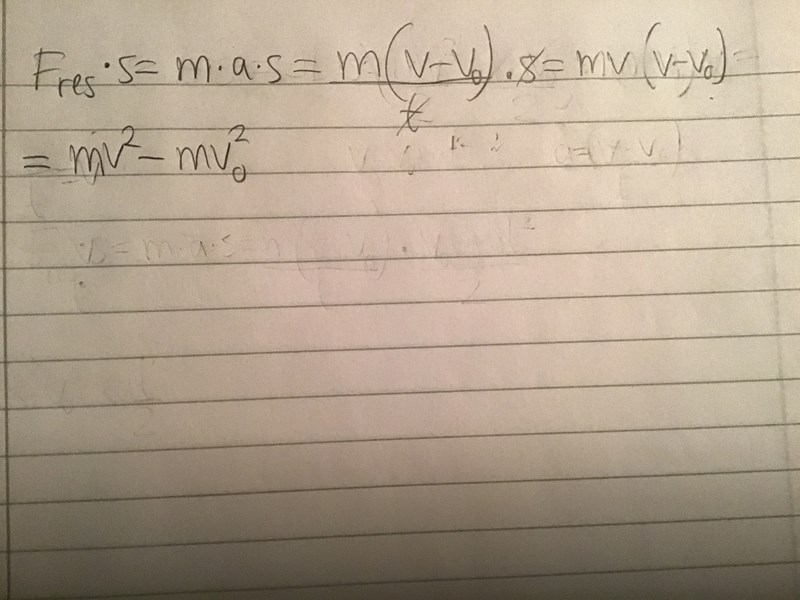 F_res · s = m · a · s = m(v-v₀)/t · s = mv(v-v₀)
= mv² - mv₀²